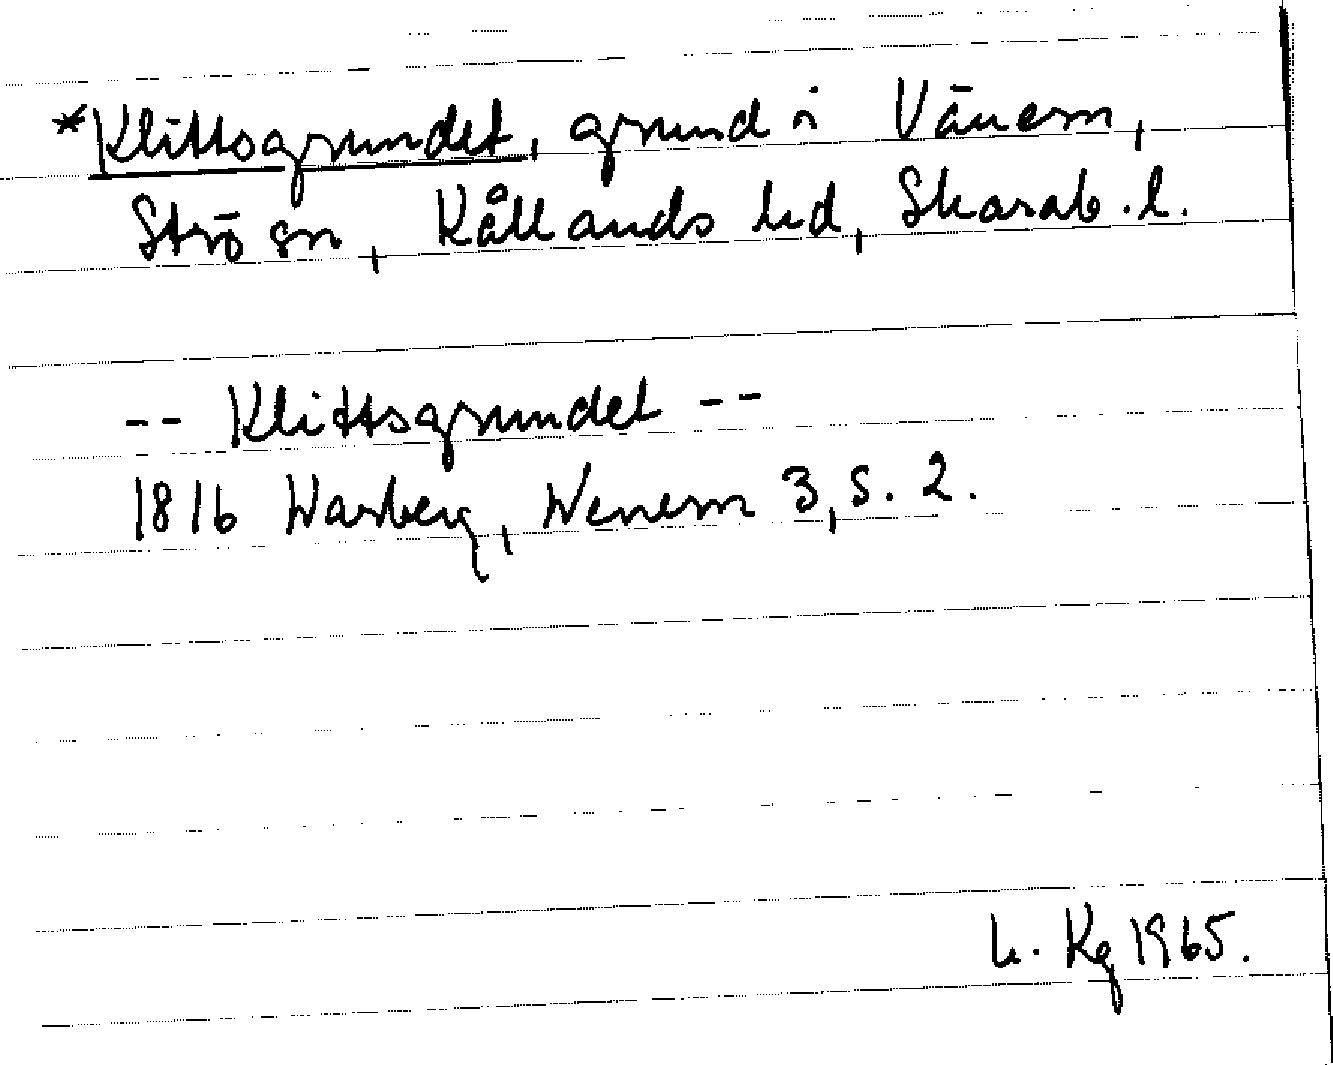 *Klittsgrundet, grund i Vänern,
Strö sn, Kållands hd, Skarab. l.
-- Klittsgrundet --
1816 Warberg, Wenern 3, s. 2.
L. Kg 1965.